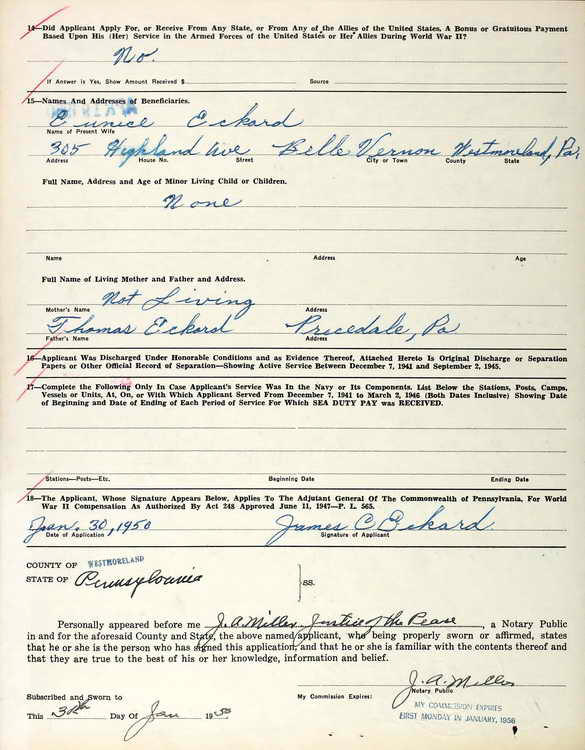 14—Did Applicant Apply For, or Receive From Any State, or From Any of the Allies of the United States, A Bonus or Gratuitous Payment
Based Upon His (Her) Service in the Armed Forces of the United States or Her Allies During World War II?
No.
If Answer is Yes, Show Amount Received $ Source
15—Names And Addresses of Beneficiaries.
Eunice Eckard
Name of Present Wife
305 Highland Ave Belle Vernon Westmoreland, Pa.
Address House No. Street City or Town County State
Full Name, Address and Age of Minor Living Child or Children.
None
Name Address Age
Full Name of Living Mother and Father and Address.
Not Living
Mother's Name Address
Thomas Eckard Pricedale, Pa
Father's Name Address
16—Applicant Was Discharged Under Honorable Conditions and as Evidence Thereof, Attached Hereto Is Original Discharge or Separation
Papers or Other Official Record of Separation—Showing Active Service Between December 7, 1941 and September 2, 1945.
17—Complete the Following Only In Case Applicant's Service Was In the Navy or Its Components. List Below the Stations, Posts, Camps,
Vessels or Units, At, On, or With Which Applicant Served From December 7, 1941 to March 2, 1946 (Both Dates Inclusive) Showing Date
of Beginning and Date of Ending of Each Period of Service For Which SEA DUTY PAY was RECEIVED.
Stations—Posts—Etc. Beginning Date Ending Date
18—The Applicant, Whose Signature Appears Below, Applies To The Adjutant General Of The Commonwealth of Pennsylvania, For World
War II Compensation As Authorized By Act 248 Approved June 11, 1947—P. L. 565.
Jan. 30, 1950 James C Eckard.
Date of Application Signature of Applicant
COUNTY OF WESTMORELAND
STATE OF Pennsylvania
ss.
Personally appeared before me J. A. Miller Justice of the Pease, a Notary Public
in and for the aforesaid County and State, the above named applicant, who being properly sworn or affirmed, states
that he or she is the person who has signed this application, and that he or she is familiar with the contents thereof and
that they are true to the best of his or her knowledge, information and belief.
J. A. Miller
Notary Public
Subscribed and Sworn to My Commission Expires:
MY COMMISSION EXPIRES
FIRST MONDAY IN JANUARY, 1956
This 30th Day Of Jan 1950